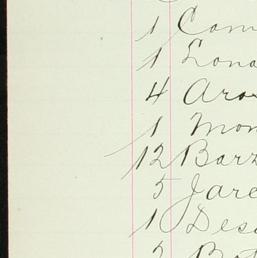 1 Com
1 Lona
4 Aro
1 Mon
12 Barz
5 Jare
1 Des
2 Bot